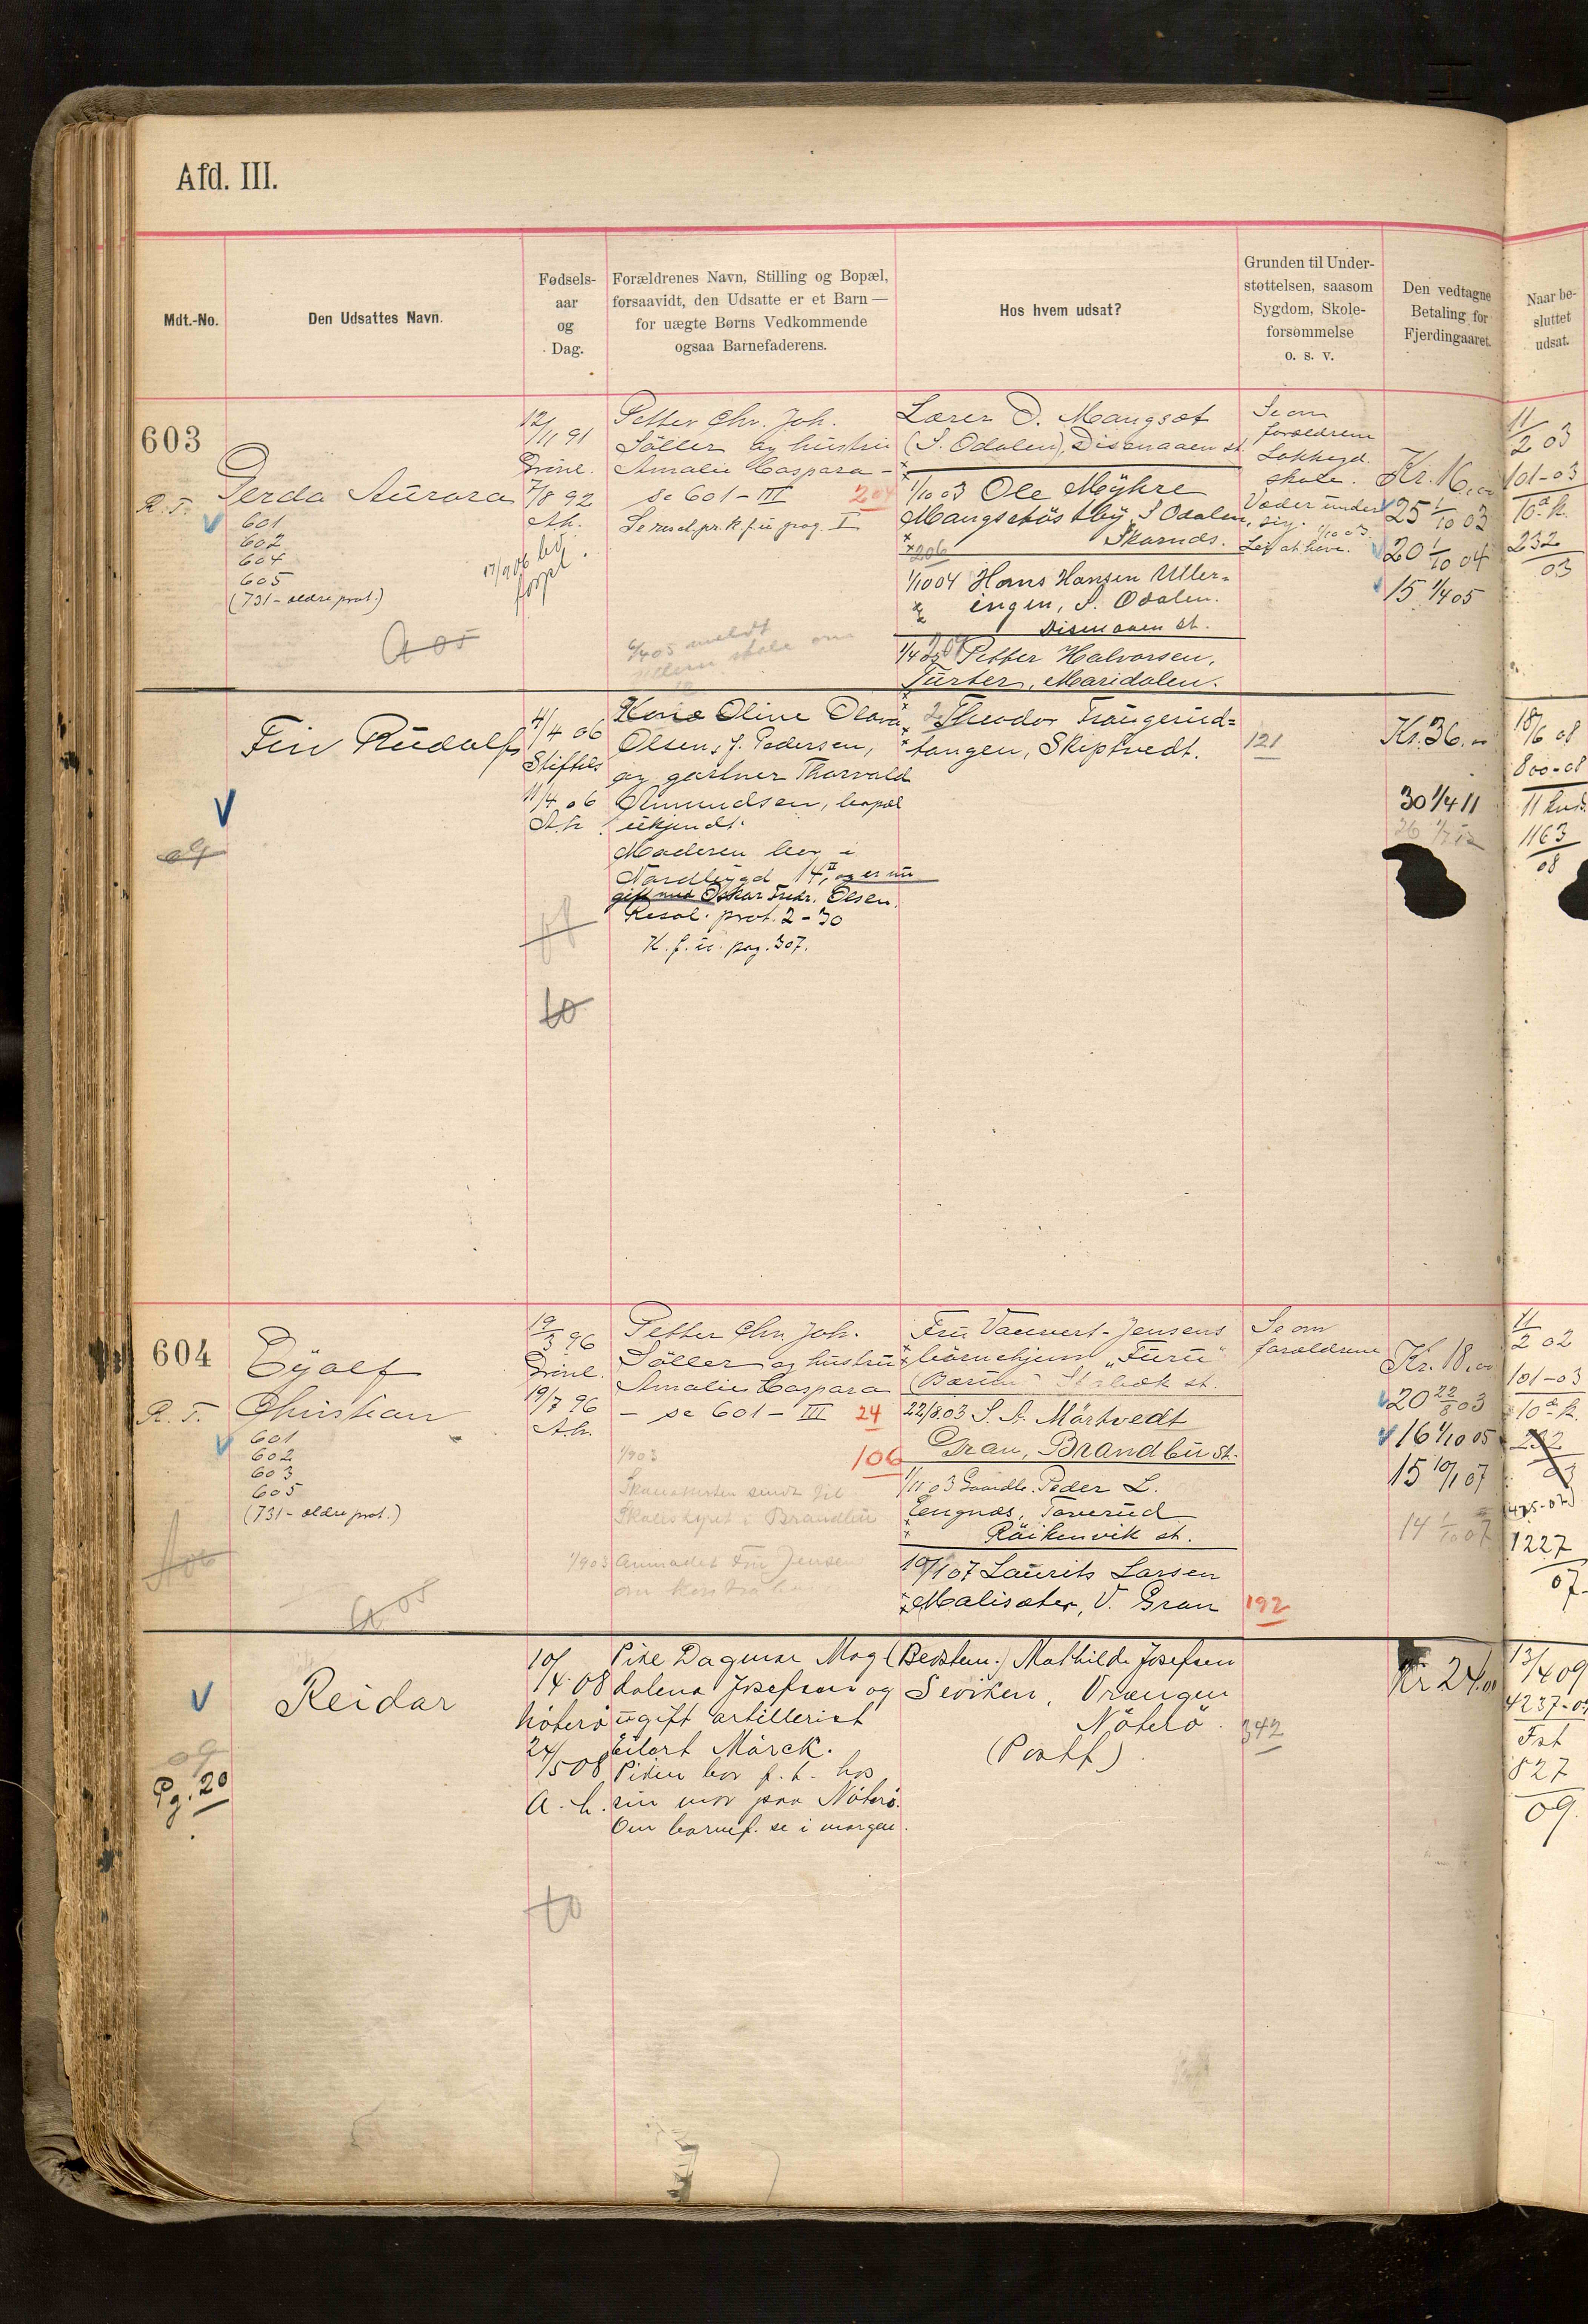 Afd. III.
Mdt.-No.
Den Udsattes Navn.
Fødsels-
aar
og
Dag.
Forældrenes Navn, Stilling og Bopæl,
forsaavidt, den Udsatte er et Barn —
for uægte Børns Vedkommende
ogsaa Barnefaderens.
Hos hvem udsat?
Grunden til Under-
støttelsen, saasom
Sygdom, Skole-
forsømmelse
o. s. v.
Den vedtagne
Betaling for
Fjerdingaaret.
Naar be-
sluttet
udsat.
603
R. T.
Gerda Aurora
601
602
604
605
(731 - ældre prot.)
12/11 91
7/8 92
Ah.
Petter Chr. Joh.
Söller og hustru
Amalie Caspara -
se 601 - III
204
Lærer O. Mangset
(S. Odalen), Disenaaen st.
1/10 03 Ole Myhre
S. Odalen,
Skarnes.
206
1/10 04 Hans Hansen Uller-
ingen, S. Odalen.
Disenaaen st.
1/4 05 Petter Halvorsen,
Turter, Maridalen.
Se om
forældrene
skole.
Kr. 16,00
25 1/10 03
20 1/10 04
15 1/4 05
11/2 03
101-03
10de k.
232
03
6/4 05 meldt
skole om
Fin Rudolf
4/4 06
Stiftels
11/4 06
A.h.
Oline
Olsen, f. Pedersen,
og gartner Thorvald
Amundsen, bopæl
ukjendt.
Moderen bor i
Nordbygd 14 II, og er nu
gift med Oskar Fredr. Olsen.
Resol. prot. 2 - 30
K. f. u. pag. 307.
Theodor Trangerud-
tangen, Skiptvedt.
121
Kr. 36.00
30 1/4 11
18/6 08
800-08
1163
08
09
604
R. T.
Eyolf
Christian
601
602
603
605
(731 - ældre prot.)
19/3 96
19/7 96
A.h.
Petter Chr. Joh.
Söller og hustru
Amalie Caspara
- se 601 - III
24
106
Fru Vauvert-Jensens
börnehjem "Furu"
(Bærum) Stabæk st.
22/8 03 S. A. Mörtvedt
Gran, Brandbu st.
1/11 03 Gaardbr. Peder L.
Röikenvik st.
10/1 07 Laurits Larsen
Malisæter, V. Gran
192
Se om
forældrene
Kr. 18,00
20 22/8 03
16 1/10 05
15 10/1 07
14 1/10 07
11/2 02
101-03
10de k.
232
03
1227
07.
Reidar
09
Pg. 20
10/4 08
Nöterö
24/5 08
A.h.
Pike Dagmar Mag-
dalena Josefsen og
ugift artillerist
Eilert Mörck.
Piken bor p. t. hos
sin mor paa Nöterö.
Om barnef. se i margen.
(Bedstem.) Mathilde Josefsen
Vrængen
Nöterö.
(Postf)
342
Kr. 24.00
13/4 09
4237-09
Fat
827
09.